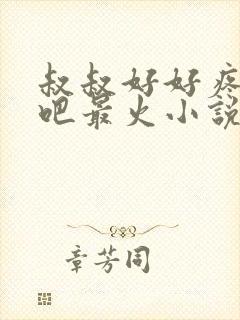 叔叔好好疼
吧最火小説
章芳同